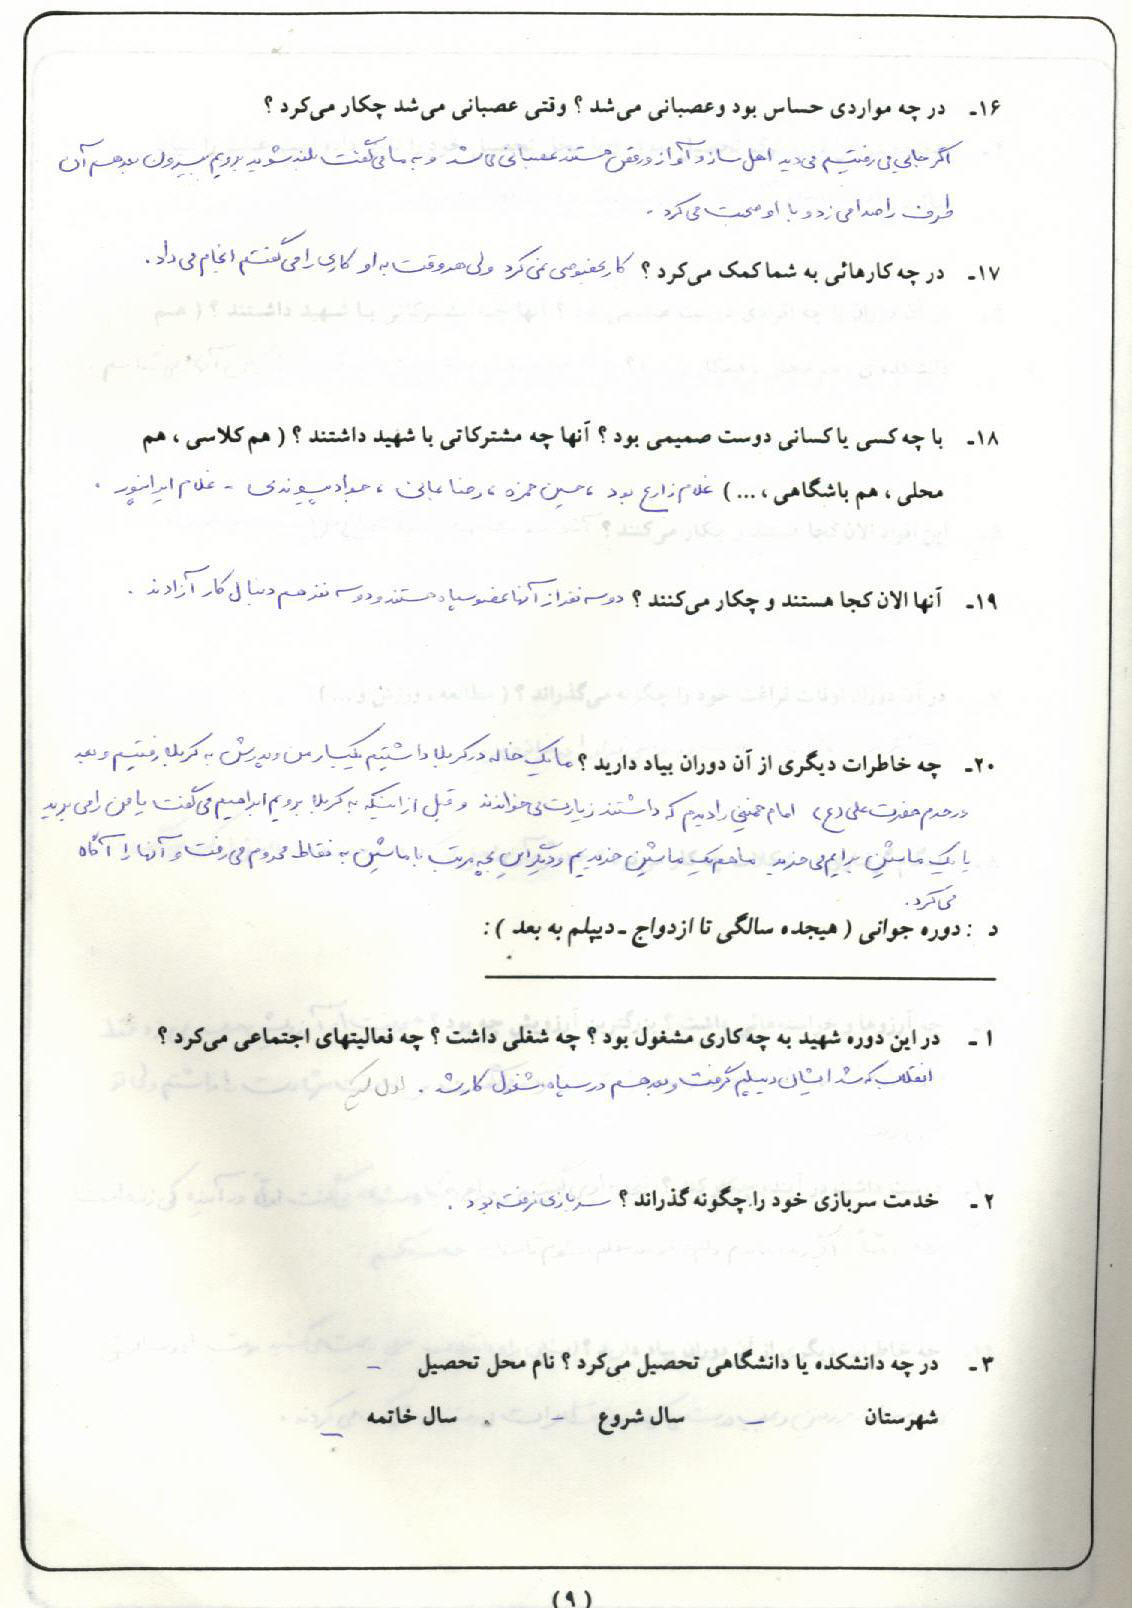 ۱۶ـ در چه مواردی حساس بود وعصبانی می‌شد ؟ وقتی عصبانی می‌شد چکار می‌کرد ؟
اگر جایی می رفتیم می دید اهل ساز و آواز و رقص هستند عصبانی می شد و به ما می گفت بلند شوید برویم بیرون بعد هم آن
طرف را صدا می زد و با او صحبت می کرد .
۱۷ـ در چه کارهائی به شما کمک می‌کرد ؟ کار بخصوصی نمی کرد ولی هر وقت به او کاری را می گفتم انجام می داد .
۱۸ـ با چه کسی یا کسانی دوست صمیمی بود ؟ آنها چه مشترکاتی با شهید داشتند ؟ ( هم کلاسی ، هم
محلی ، هم باشگاهی ، ... ) غلام زارع بود ، حسین حمزه ، رضا ، جواد پیوندی - غلام ایرانپور .
۱۹ـ آنها الان کجا هستند و چکار می‌کنند ؟ دو سه نفر از آنها عضو سپاه هستند و دو سه نفر هم دنبال کار آزادند .
۲۰ـ چه خاطرات دیگری از آن دوران بیاد دارید ؟ ما یک خاله در کربلا داشتیم یکبار من و پدرش به کربلا رفتیم و بعد
در حرم حضرت علی (ع) امام خمینی را دیدم که داشتند زیارت می خواندند و قبل از اینکه به کربلا برویم ابراهیم می گفت یا من را می برید
یا یک ماشین برایم می خرید ما هم یک ماشین خریدیم و دیگر این بچه مرتب با ماشین به نقاط محروم می رفت و آنها را آگاه
می کرد .
د : دوره جوانی ( هیجده سالگی تا ازدواج ـ دیپلم به بعد ) :
۱ـ در این دوره شهید به چه کاری مشغول بود ؟ چه شغلی داشت ؟ چه فعالیتهای اجتماعی می‌کرد ؟
انقلاب که شد ایشان دیپلم گرفت و بعد هم در سپاه مشغول کار شد . اول
۲ـ خدمت سربازی خود را چگونه گذراند ؟ سربازی نرفته بود .
۳ـ در چه دانشکده یا دانشگاهی تحصیل می‌کرد ؟ نام محل تحصیل -
شهرستان - سال شروع - سال خاتمه -
( ۹ )